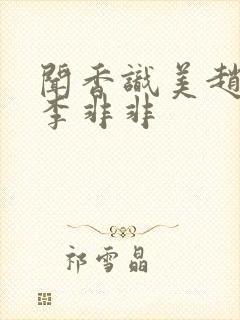 聞香識美趙
李非非
祁雪晶